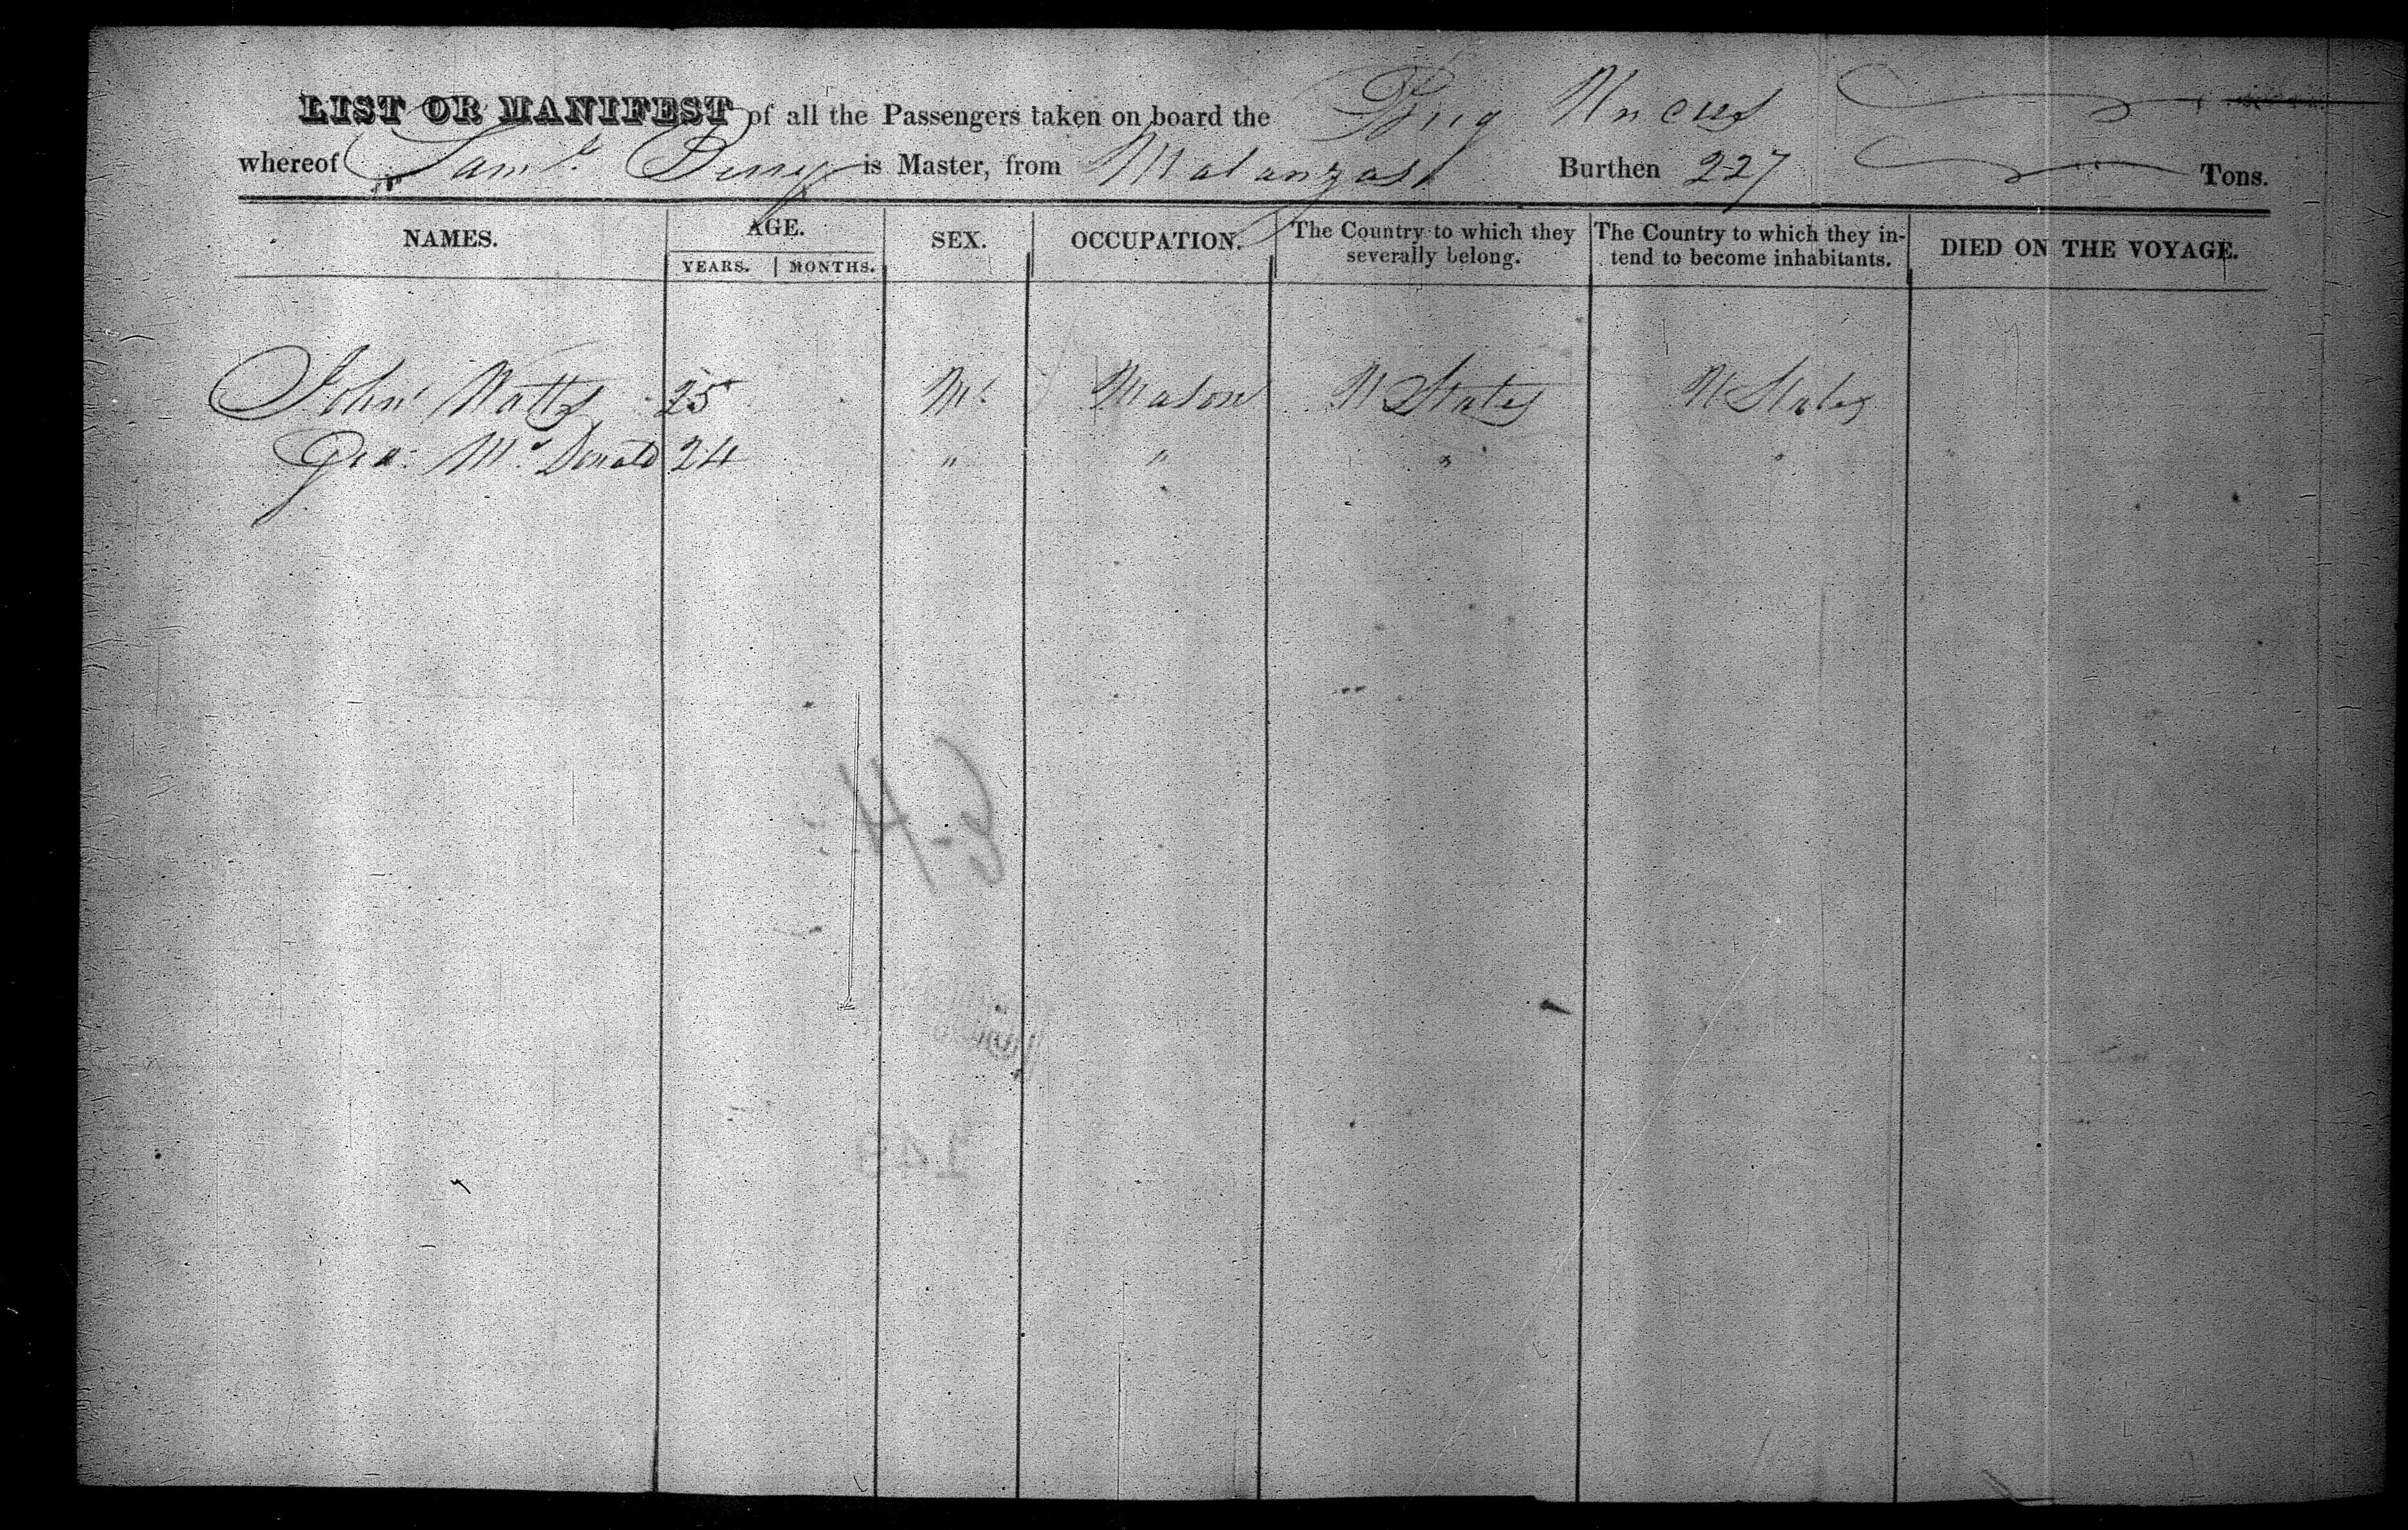 LIST OR MANIFEST of all the Passengers taken on board the Brig Uncas
whereof Saml. Berry is Master, from Matanzas Burthen 227 Tons.
NAMES. AGE. SEX. OCCUPATION. The Country to which they severally belong. The Country to which they intend to become inhabitants. DIED ON THE VOYAGE.
YEARS. MONTHS.
John Watts 25 M. Mason U States U States
Geo: Mc Donald 24 " " " "